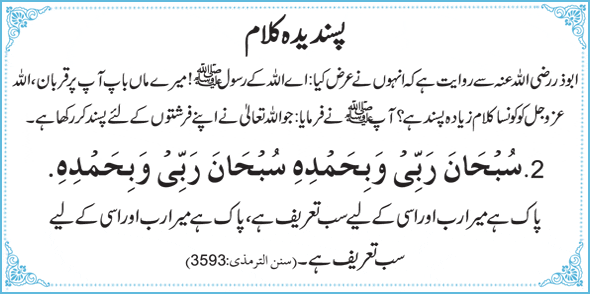 پسندیدہ کلام
ابوذر رضی اللہ عنہ سے روایت ہے کہ انہوں نے عرض کیا: اے اللہ کے رسول ﷺ! میرے ماں باپ آپ پر قربان، اللہ
عزوجل کو کونسا کلام زیادہ پسند ہے؟ آپ ﷺ نے فرمایا: جو اللہ تعالیٰ نے اپنے فرشتوں کے لئے پسند کر رکھا ہے۔
2. سُبْحَانَ رَبِّیْ وَبِحَمْدِہِ سُبْحَانَ رَبِّیْ وَبِحَمْدِہِ.
پاک ہے میرا رب اور اسی کے لیے سب تعریف ہے، پاک ہے میرا رب اور اسی کے لیے
سب تعریف ہے۔ (سنن الترمذی: 3593)